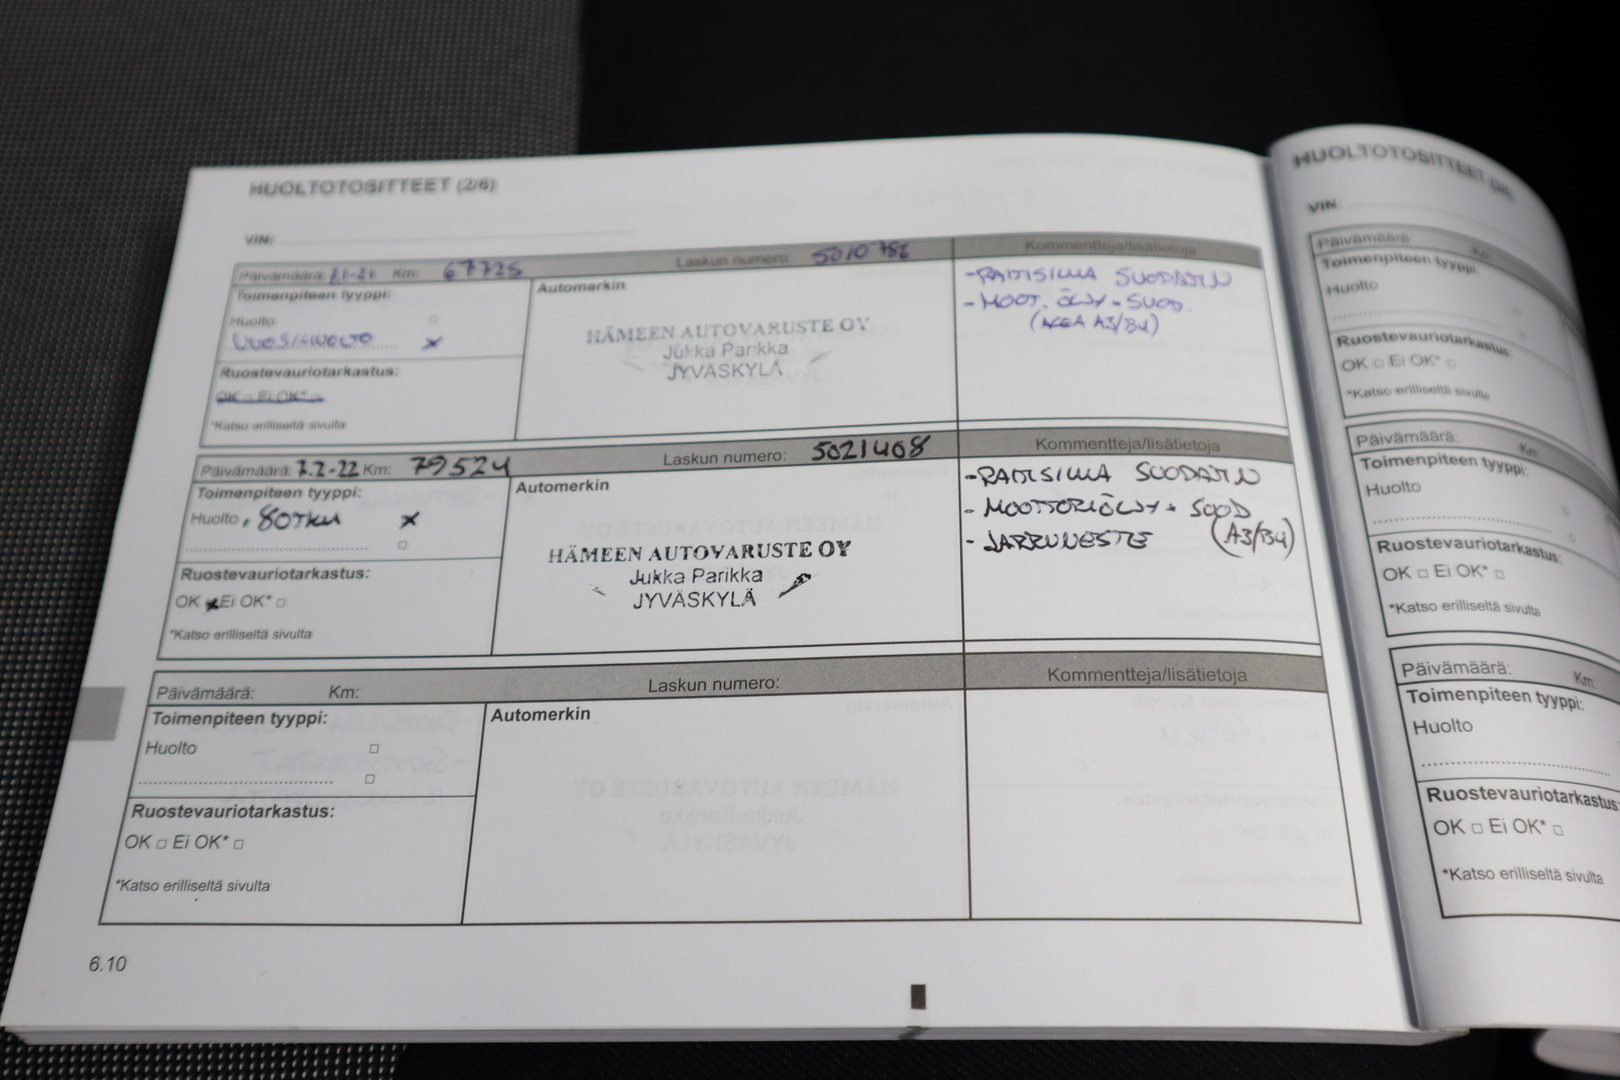 HUOLTOTOSITTEET (2/6)
VIN:
Päivämäärä: Km: 67725 Laskun numero: 5010786 Kommentteja/lisätietoja
Toimenpiteen tyyppi:
Huolto □
VUOSIHUOLTO x
Ruostevauriotarkastus:
OK □ Ei OK* □
*Katso erilliseltä sivulta
Automerkin
HÄMEEN AUTOVARUSTE OY
Jukka Parikka
JYVÄSKYLÄ
-RAITISILMA SUODATIN
-MOOT. ÖLJY + SUOD.
(ACEA A3/B4)
Päivämäärä: 7.2-22 Km: 79524 Laskun numero: 5021408 Kommentteja/lisätietoja
Toimenpiteen tyyppi:
Huolto, 80TKM x
□
Ruostevauriotarkastus:
OK x Ei OK* □
*Katso erilliseltä sivulta
Automerkin
HÄMEEN AUTOVARUSTE OY
Jukka Parikka
JYVÄSKYLÄ
-RAITISILMA SUODATIN
-MOOTTORIÖLJY + SUOD
-JARRUNESTE (A3/B4)
Päivämäärä: Km: Laskun numero: Kommentteja/lisätietoja
Toimenpiteen tyyppi:
Huolto □
□
Ruostevauriotarkastus:
OK □ Ei OK* □
*Katso erilliseltä sivulta
Automerkin
6.10
HUOLTOTOSITTEET
VIN:
Päivämäärä Km
Toimenpiteen tyyppi:
Huolto
Ruostevauriotarkastus
OK □ Ei OK* □
*Katso erilliseltä sivulta
Päivämäärä: Km:
Toimenpiteen tyyppi:
Huolto
Ruostevauriotarkastus:
OK □ Ei OK* □
*Katso erilliseltä sivulta
Päivämäärä: Km:
Toimenpiteen tyyppi:
Huolto
Ruostevauriotarkastus
OK □ Ei OK* □
*Katso erilliseltä sivulta